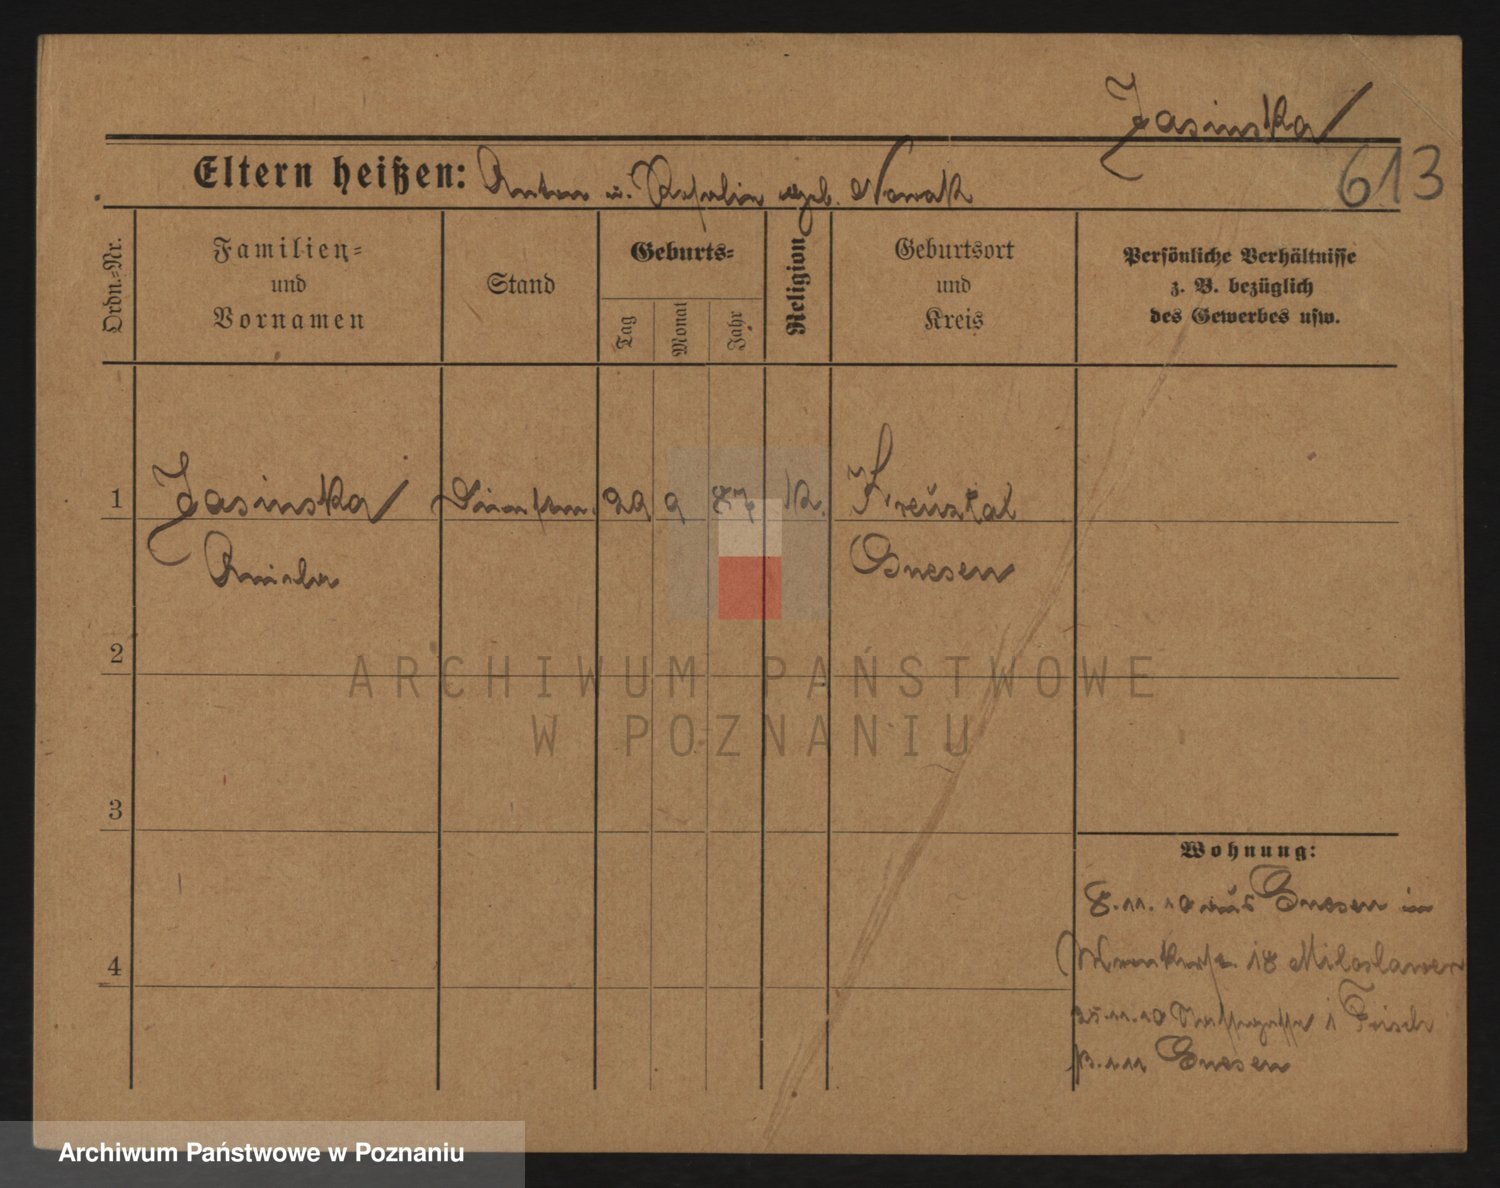 Jasinska
613
Eltern heißen: Anton u. Rosalie geb. Nowak
Ordn.-Nr.
Familien-
und
Vornamen
Stand
Geburts-
Tag
Monat
Jahr
Religion
Geburtsort
und
Kreis
Persönliche Verhältnisse
z. B. bezüglich
des Gewerbes usw.
1
Jasinska
29 9 87 k.
Kreuztal
Gnesen
2
ARCHIWUM PAŃSTWOWE
W POZNANIU
3
4
Wohnung:
8.11.10 aus Gnesen in
18 Miloslawer
25.11.10
Gnesen
Archiwum Państwowe w Poznaniu